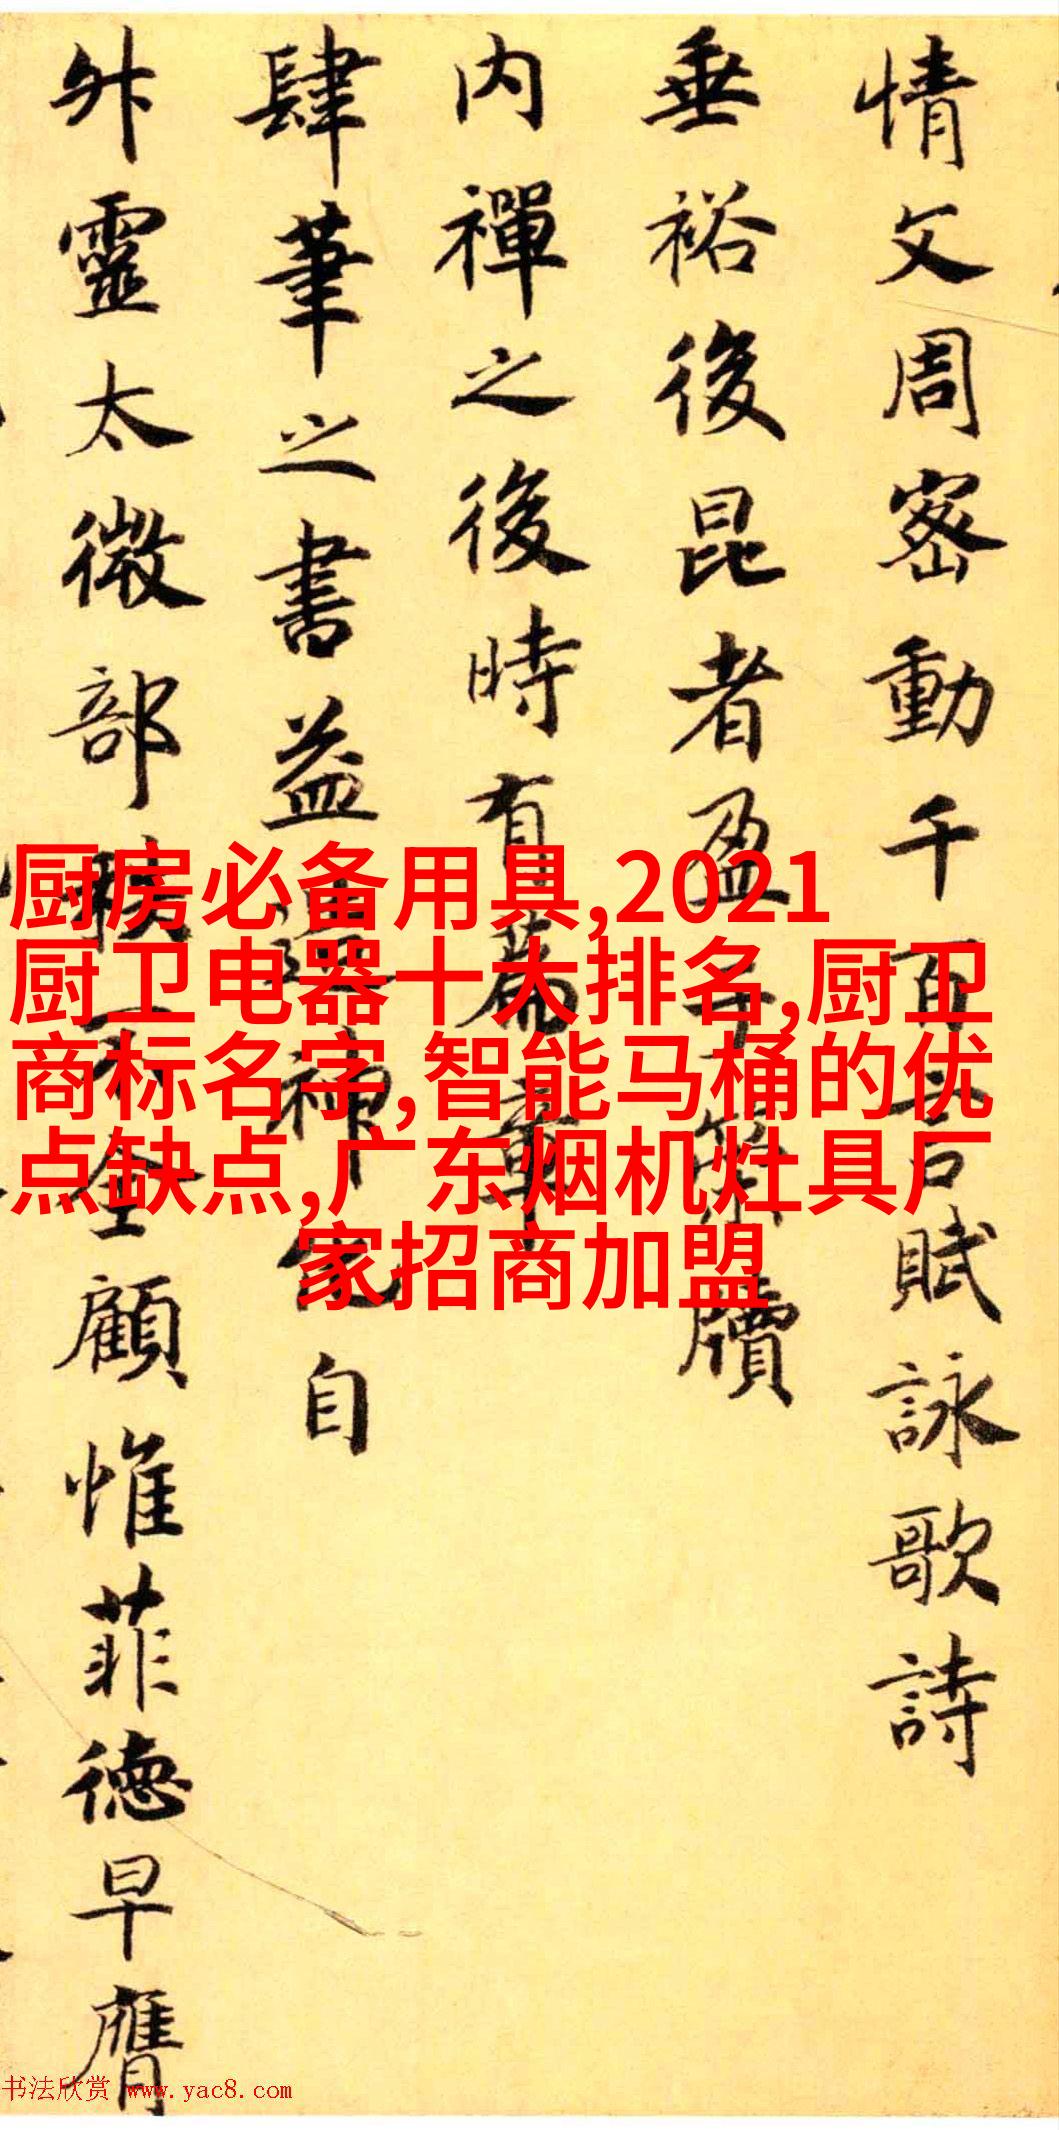 情文周密動千百言賦詠歌詩
垂裕後昆者盈
牘
内禪之後時有篇章
肆筆之書益
神
自
外靈太微部
顧惟菲德早膺
厨房必备用具,2021
厨卫电器十大排名,厨卫
商标名字,智能马桶的优
点缺点,广东烟机灶具厂
家招商加盟
书法欣赏 www.yac8.com